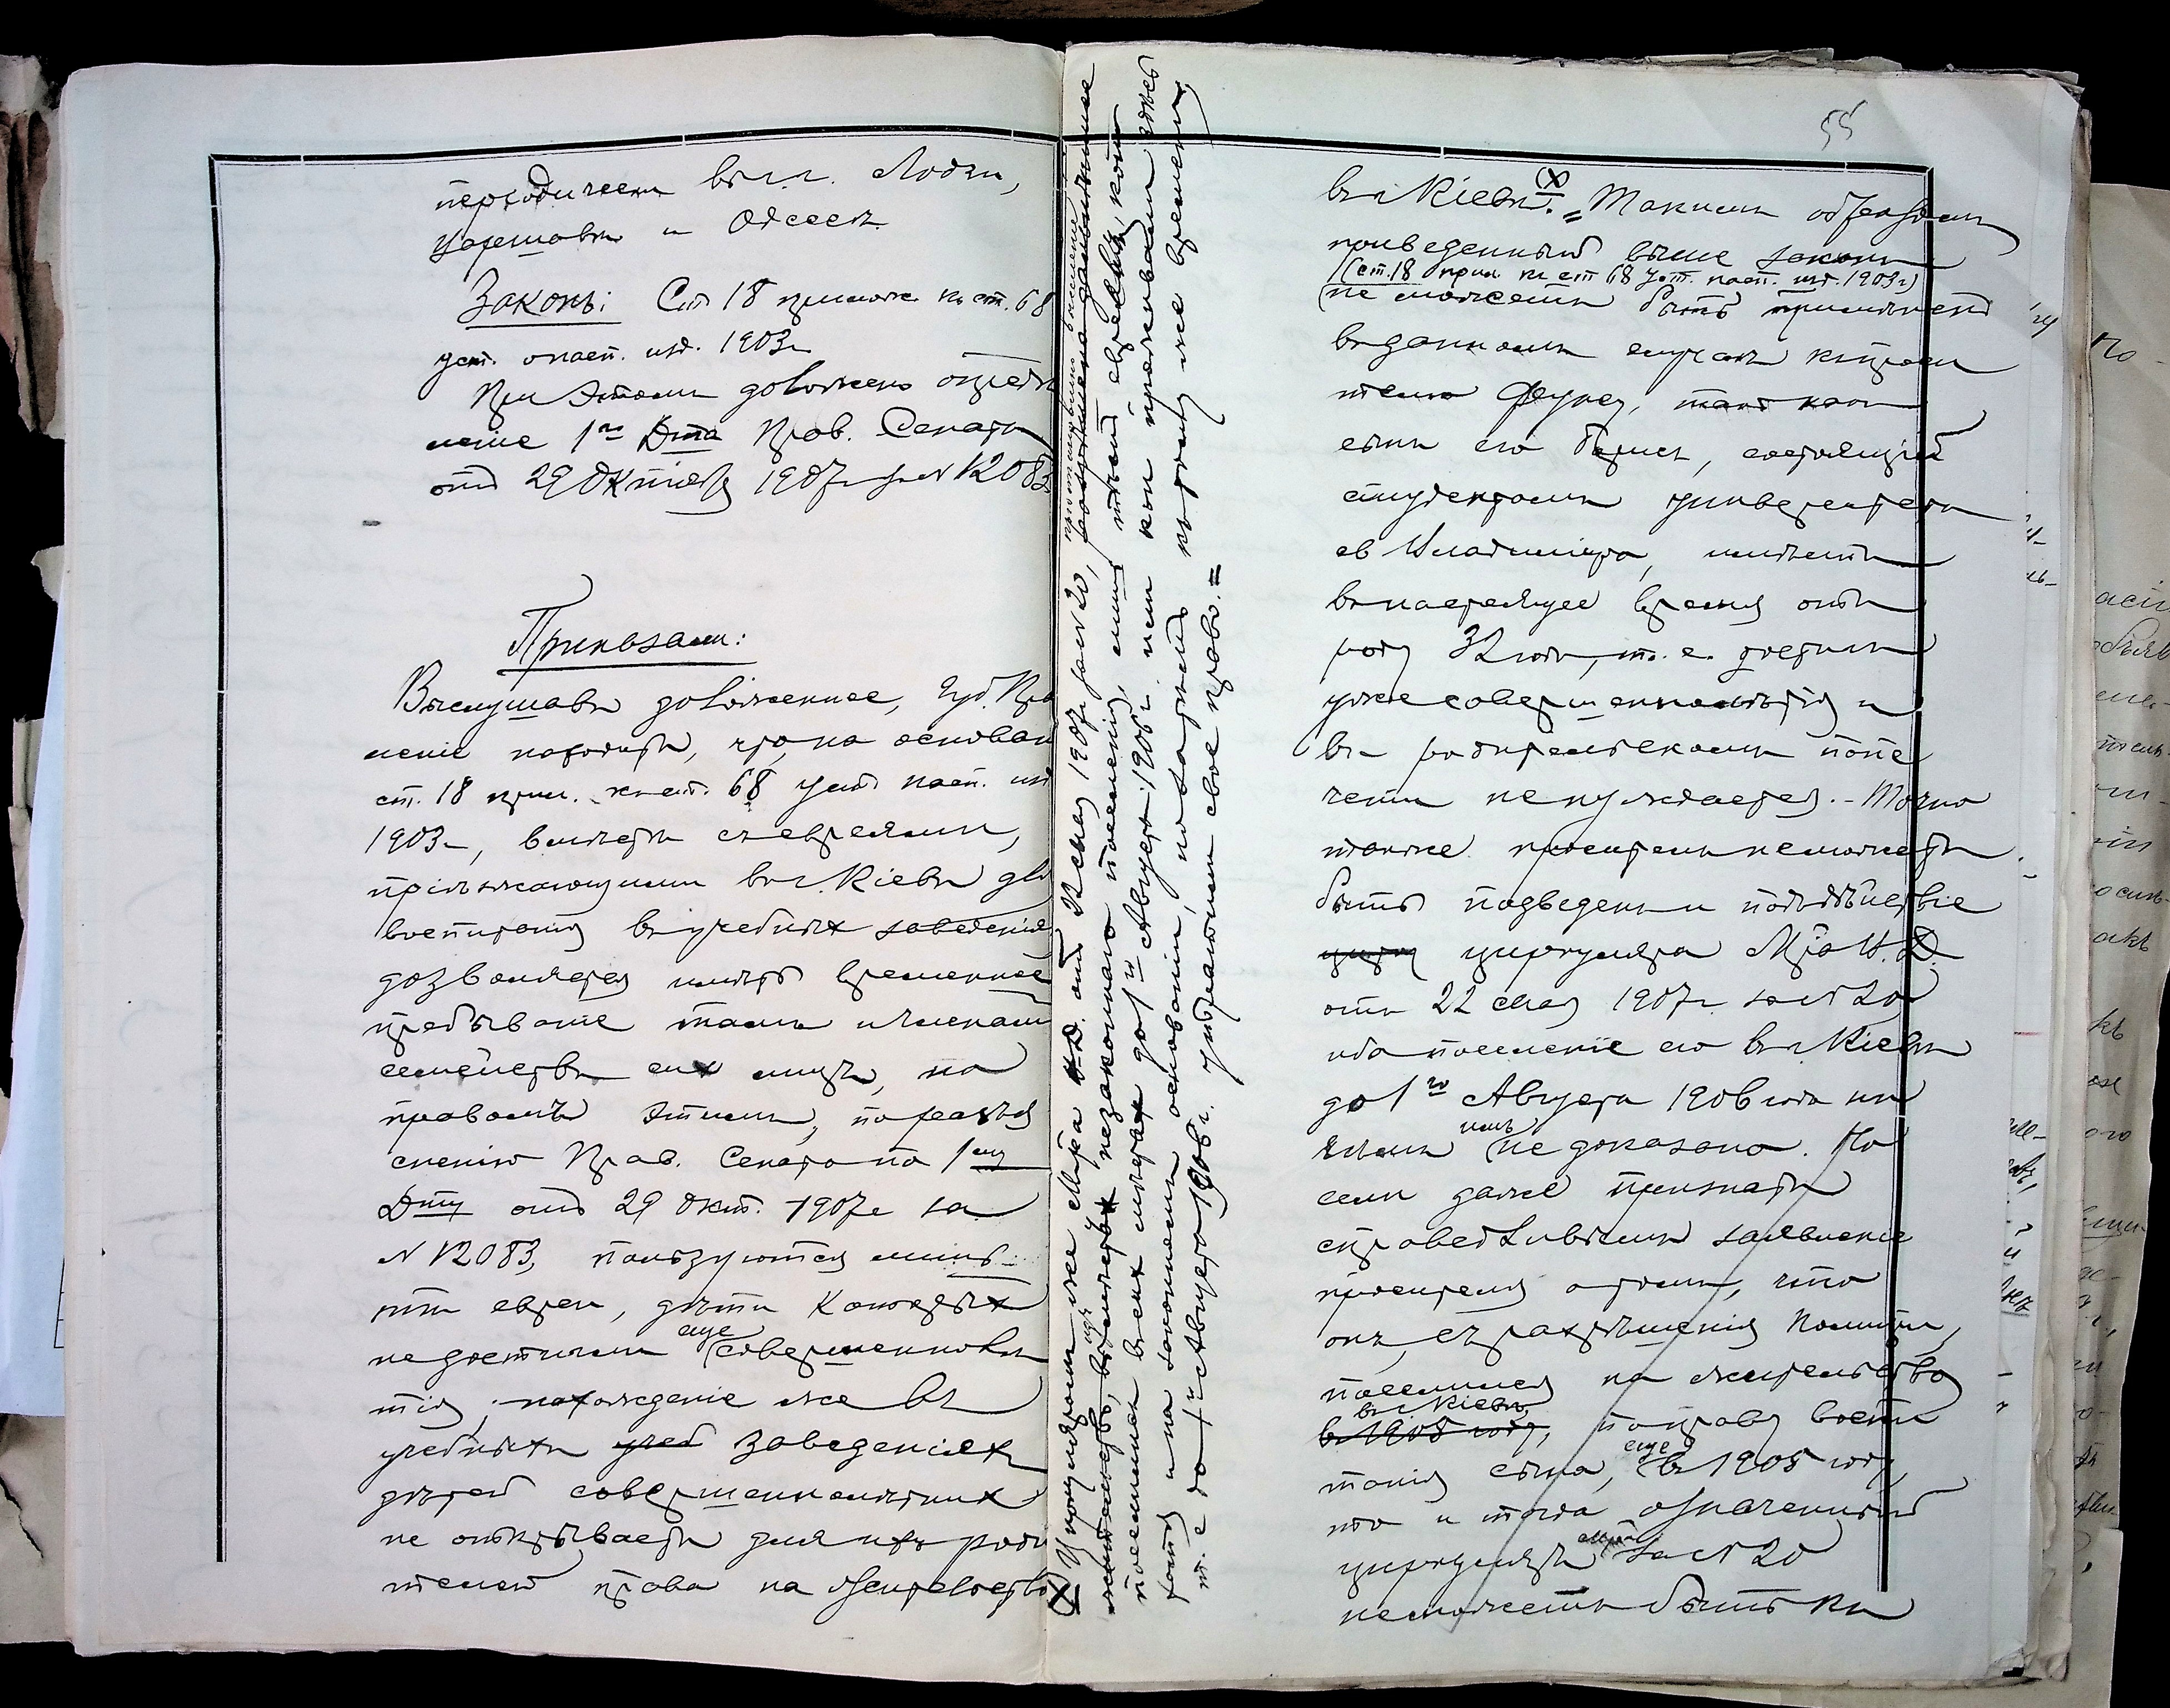 періодически въ г.г. Лодзи,
Варшавѣ и Одессѣ.
Законъ: Ст 18 прилож. къ ст. 68
уст. о пасп. изд. 1903 г.
При этомъ доложено опредѣ
леніе 1го Д-та Прав. Сената
отъ 29 Октября 1907 г. за № 12083.
Приказали:
Выслушавъ доложенное, Губ. Прав
леніе находитъ, что, на основан
ст. 18 прил. къ ст. 68 Уст. пасп. изд
1903 г., вмѣстѣ съ евреями,
пріѣзжающими въ г. Кіевъ для
воспитанія въ учебныхъ заведенія
дозволяется имѣть временное
пребываніе тамъ и членамъ
семействъ сихъ лицъ, но
правомъ этимъ, по разъя
сненію Прав. Сената по 1му
Д-ту отъ 29 Окт. 1907 г. за
№ 12083, пользуются лишь
тѣ евреи, дѣти которыхъ
не достигли еще совершеннолѣ
тія; нахожденіе же въ
учебныхъ учеб заведеніяхъ
дѣтей совершеннолѣтнихъ
не открываетъ для ихъ роди
телей права на жительство
(X) Циркуляромъ же М-ра В.Д. отъ 22 Мая 1907 г. за № 20, пріостановлено выселеніе
жительство, въ мѣстахъ незаконнаго поселенія, лишь тѣхъ евреевъ, кои
поселились въ сихъ мѣстахъ до 1го Августа 1906 г. или кои проживали здѣсь
хотя и на законномъ основаніи, но затѣмъ къ тому же времени,
т. е до 1го Августа 1906 г. утратили свое право.=
55
въ г. Кіевѣ (X).= Такимъ образомъ
приведенный выше законъ
(ст. 18 прил. къ ст 68 Уст. пасп. изд. 1903 г)
не можетъ быть примѣненъ
въ данномъ случаѣ къ проси
телю такъ какъ
сынъ его Борисъ, состоящій
студентомъ университета
св Владиміра, имѣетъ
въ настоящее время отъ
роду 32 года, т. е. достигъ
уже совершеннолѣтія и
въ родительскомъ попе
ченіи не нуждается.- Точно
также проситель не можетъ
быть подведенъ и подъ дѣйствіе
циркуляра М-ра В.Д.
отъ 22 Мая 1907 г. за № 20
ибо поселеніе его въ г. Кіевѣ
до 1го Августа 1906 года ни
чѣмъ имъ не доказано. Но
если даже признать
справедливымъ заявленіе
просителя о томъ, что
онъ, съ разрѣшенія Полиціи,
поселился на жительство
въ г. Кіевѣ
въ 1905 году, по праву воспи
танія сына, еще въ 1905 году,
то и тогда означенный
циркуляръ за № 20
не можетъ быть къ